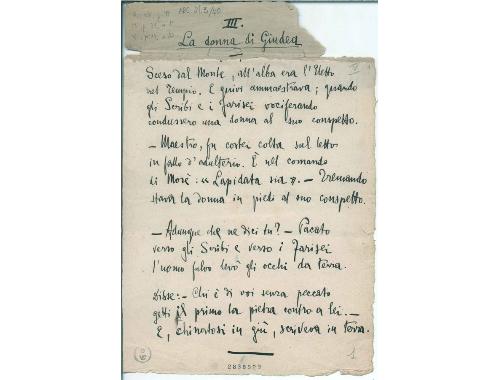 ARC. 21.3/40
III.
La donna di Giudea
Sceso dal Monte, all'alba era l'Eletto
nel Tempio. E quivi ammaestrava; quando
gli Scribi e i Farisei vociferando
condussero una donna al suo conspetto.
— Maestro, fu costei colta sul letto
in fallo d'adulterio. È nel comando
di Mosè: « Lapidata sia ». — Tremando
stava la donna in piedi al suo conspetto.
— Adunque che ne dici tu? — Pacato
verso gli Scribi e verso i Farisei
l'uomo fulvo levò gli occhi da terra.
Disse: — Chi è di voi senza peccato
getti il primo la pietra contro a lei. —
E, chinatosi in giù, scriveva in terra.
1